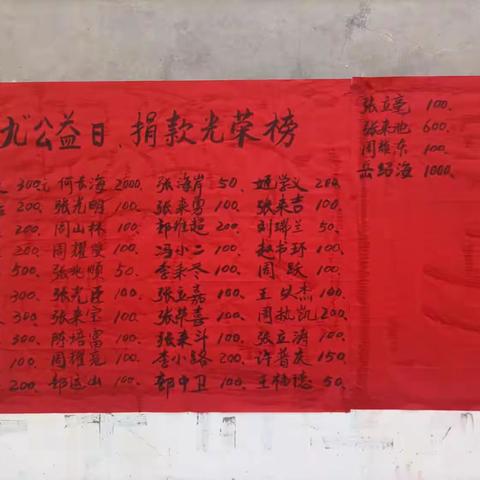 九"公益日、捐款光荣榜
300元 何长海 2000、张海岸 50、姬学义 200、
200、张光明 100、张来勇 100、张来吉 100、
200、周山林 100、郭维超 200、刘瑞兰 50、
200、周耀 100、冯小二 100、赵书环 100、
500、张兆顺 50、100、周跃 100、
300、张光 100、张立嘉 100、王 杰 100、
300、张来宝 100、张荣喜 100、周 凯 200、
300、陈培富 100、张来斗 100、张立涛 100、
100、周耀亮 100、李小路 200、许普庆 150、
200、郜运山 100、郭中卫 100、王福德 50、
张立亳 100、
张来池 600、
周雄东 100、
岳绍海 1000、